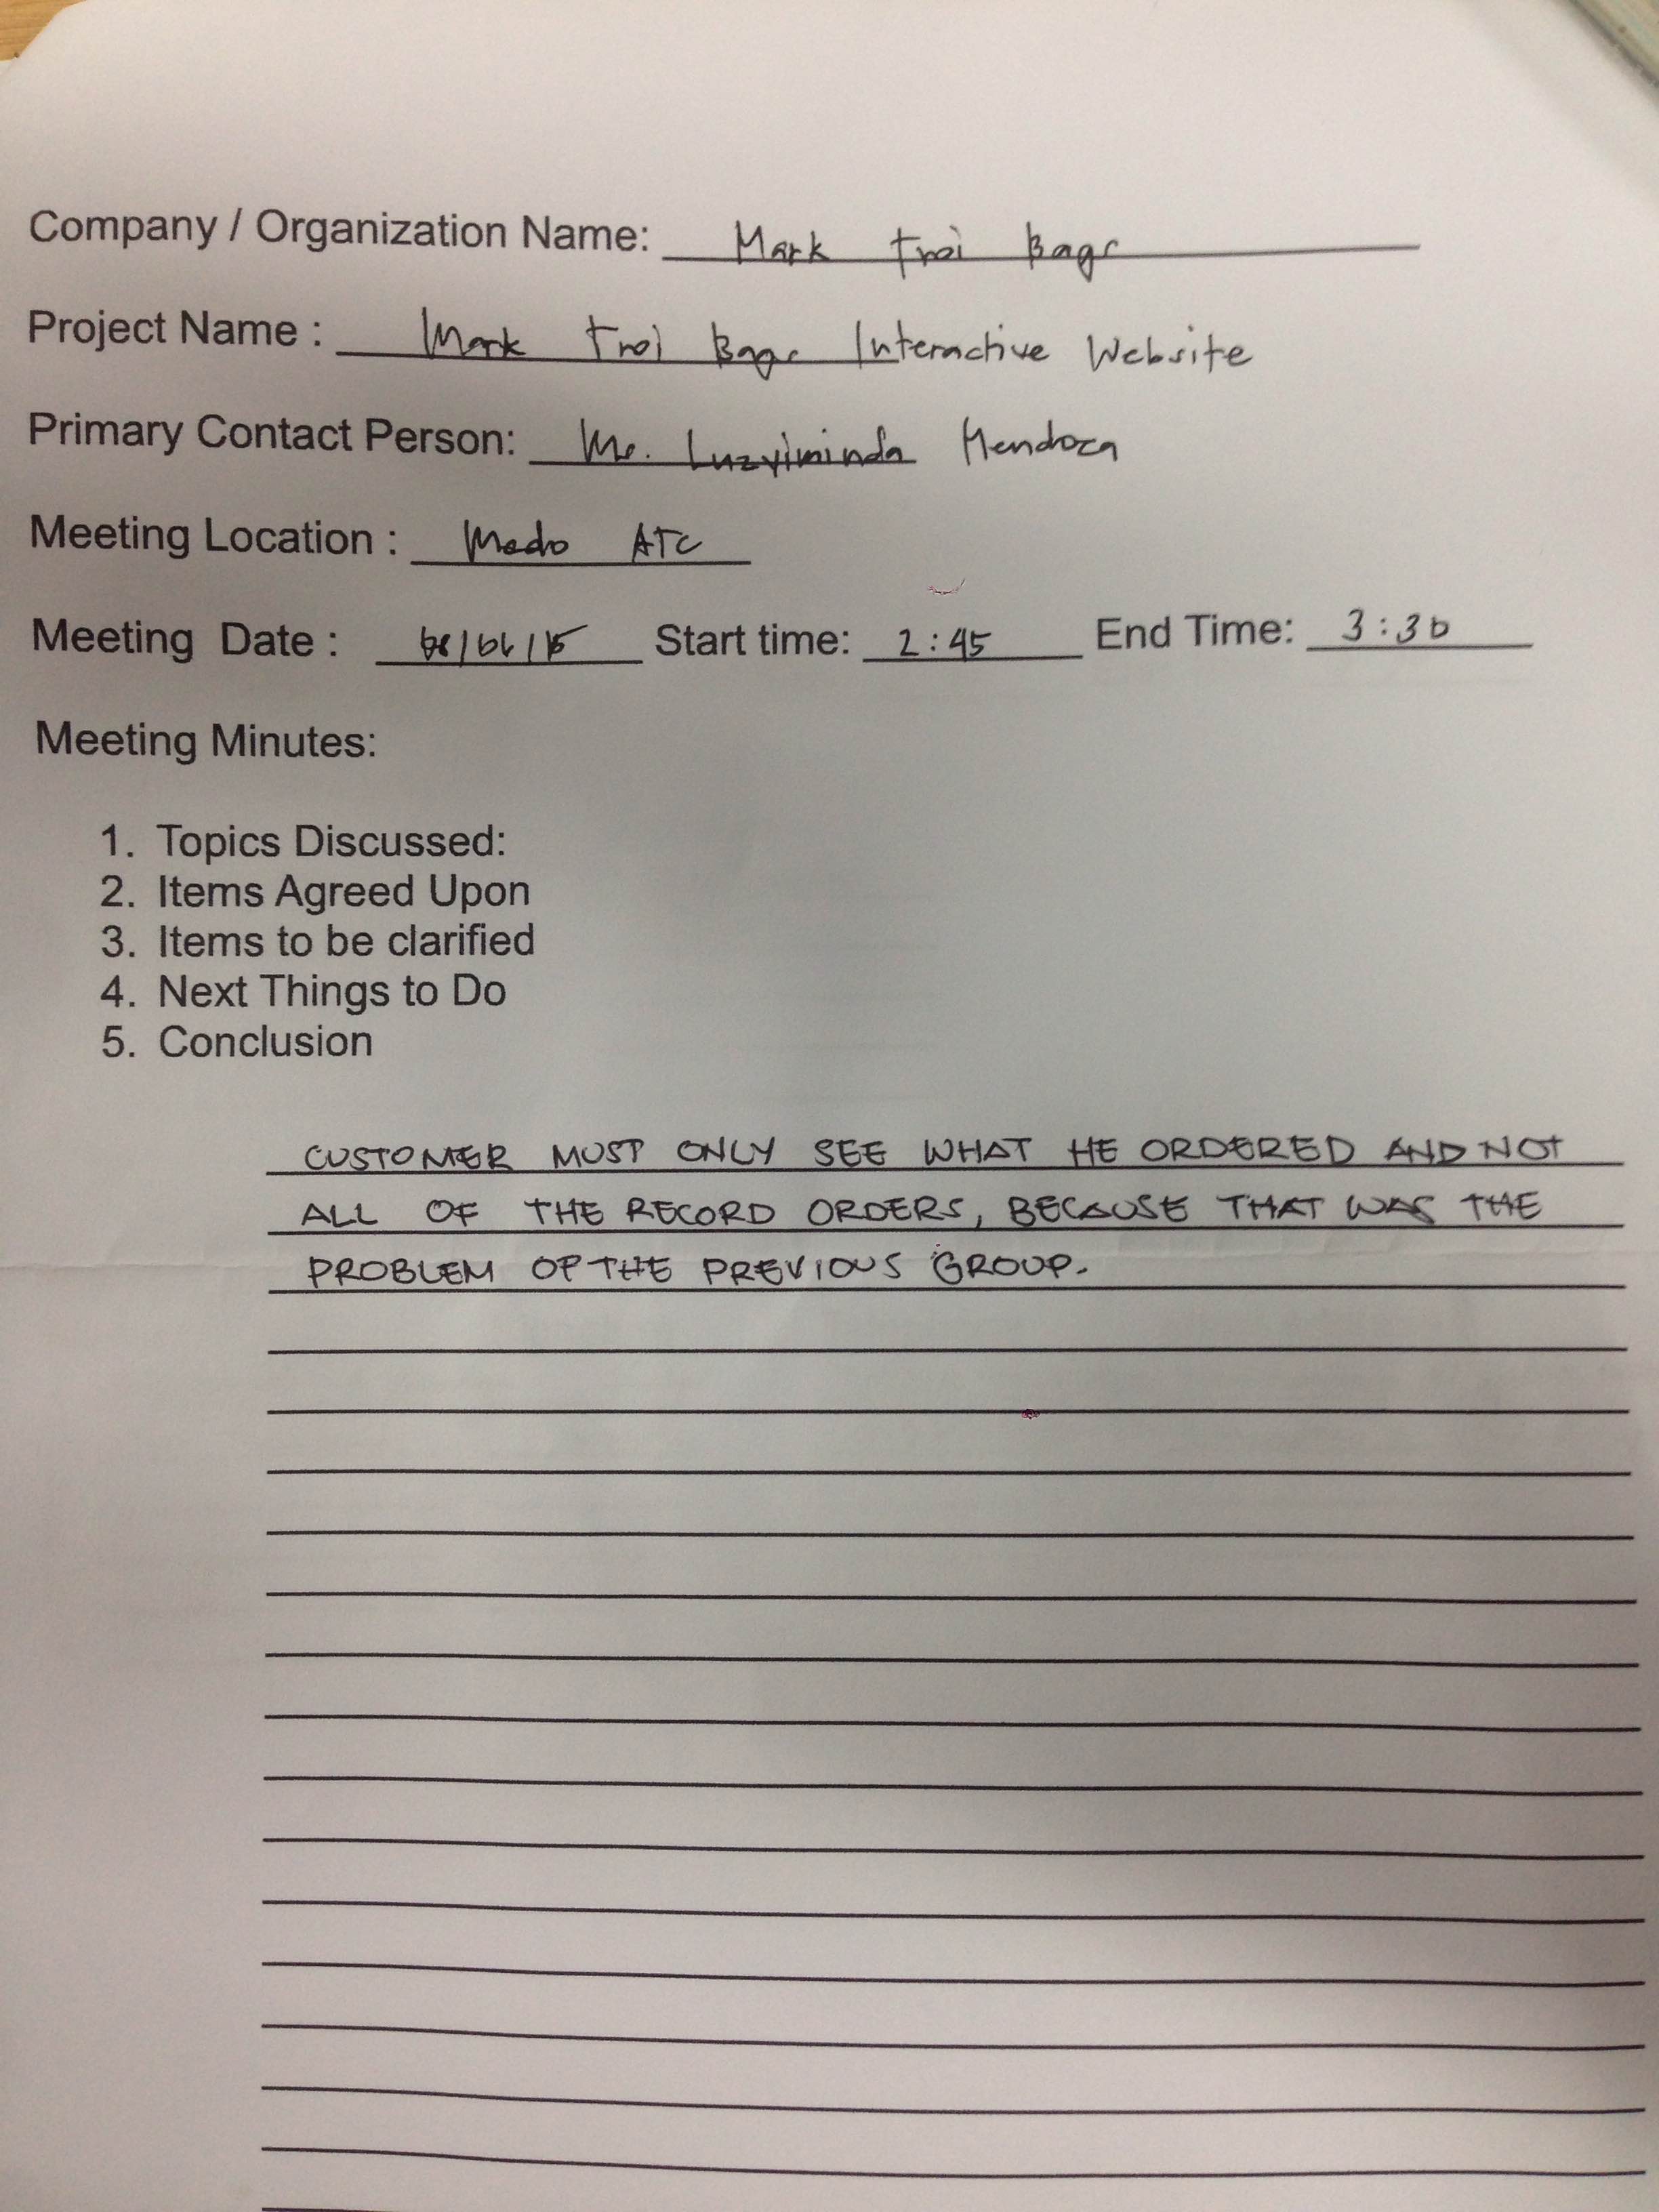 Company / Organization Name: Mark Troi Bags
Project Name : Mark Troi Bags Interactive Website
Primary Contact Person: Ms. Luzviminda Mendoza
Meeting Location : ATC
Meeting Date : Start time: 2:45 End Time: 3:30
Meeting Minutes:
1. Topics Discussed:
2. Items Agreed Upon
3. Items to be clarified
4. Next Things to Do
5. Conclusion
CUSTOMER MUST ONLY SEE WHAT HE ORDERED AND NOT
ALL OF THE RECORD ORDERS, BECAUSE THAT WAS THE
PROBLEM OF THE PREVIOUS GROUP.